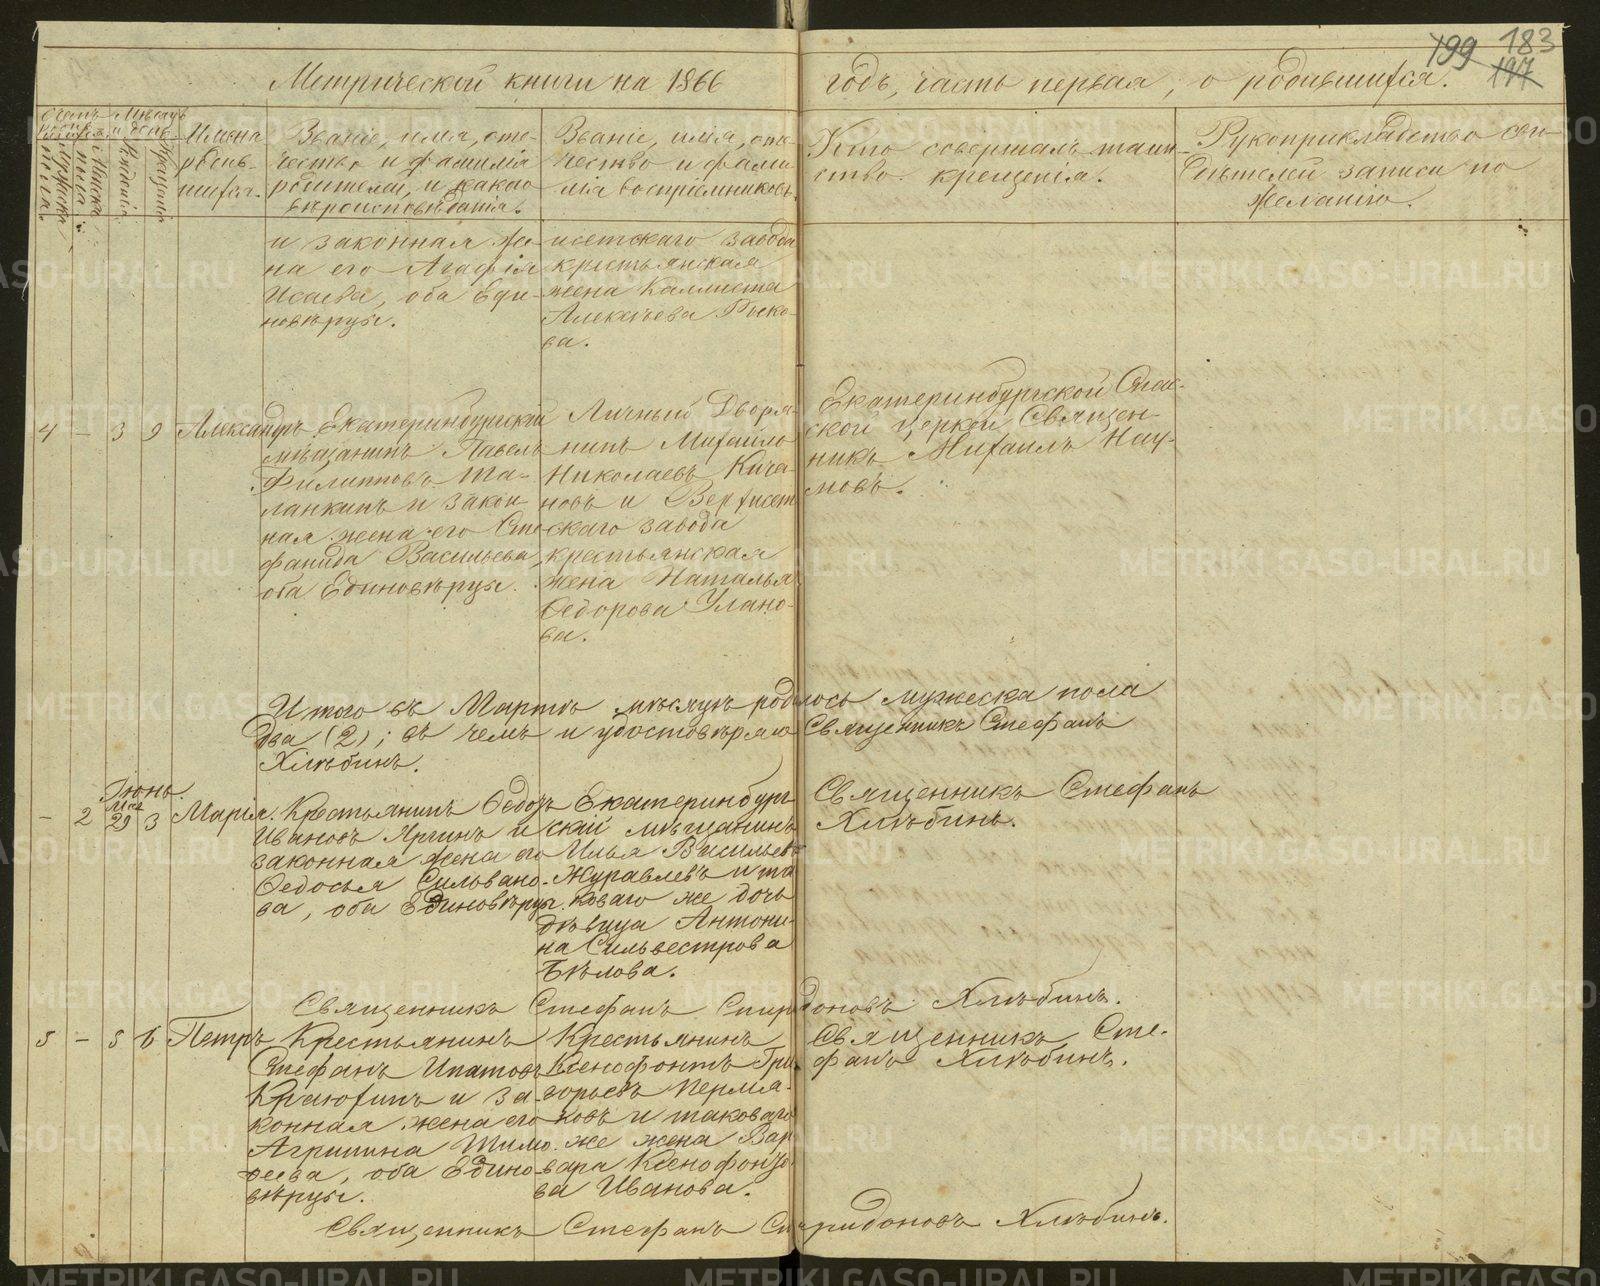 199 183
197
Метрической книги на 1866 годъ, часть первая, о родившихся.
Мѣсяцъ и день
мужеска пола
женска пола
рожденія
крещенія
Имена родив-
шихся.
Званіе, имя, оте-
чество и фамилія
родителей, и какого
вѣроисповѣданія.
Званіе, имя, оте-
чество и фами-
лія воспріемниковъ.
Кто совершалъ таин-
ство крещенія.
Рукоприкладство сви-
дѣтелей записи по
желанію.
и законная же-
на его Агафія
Исаева, оба Еди-
новѣрцы.
исетскаго завода
крестьянская
жена Каллиста
Алексѣева
ва.
4 – 3 9 Александръ
Екатеринбургскій
мѣщанинъ Павелъ
Филипповъ Та-
ланкинъ и закон-
ная жена его Сте-
фанида Васильева,
оба Единовѣрцы.
Личный Дворя-
нинъ Михайло
Николаевъ Кача-
новъ и Верхисет-
скаго завода
крестьянская
жена Наталья
Ѳедорова Улано-
ва.
Екатеринбургской Спас-
ской церкви Священ-
никъ Михаилъ Нау-
мовъ.
Итого въ Мартѣ мѣсяцѣ родилось мужеска пола
два (2); въ чемъ и удостовѣряю Священникъ Стефанъ
Хлѣбинъ.
Іюнь
– 2 Мая 29 3 Марія.
Крестьянинъ Ѳедоръ
Ивановъ Яргинъ и
законная жена его
Ѳедосья Сильвано-
ва, оба Единовѣрцы.
Екатеринбург-
скій мѣщанинъ
Илья Васильевъ
Журавлевъ и та-
коваго же дочь
дѣвица Антони-
на Сильвестрова
Бѣлова.
Священникъ Стефанъ
Хлѣбинъ.
Священникъ Стефанъ Спиридоновъ Хлѣбинъ.
5 – 5 6 Петръ
Крестьянинъ
Стефанъ Ипатовъ
Краюхинъ и за-
конная жена его
Агрипина Тимо-
ѳеева, оба Едино-
вѣрцы.
Крестьянинъ
Ксенофонтъ Гри-
горьевъ Пермя-
ковъ и таковаго
же жена Вар-
вара Ксенофонто-
ва Иванова.
Священникъ Сте-
фанъ Хлѣбинъ.
Священникъ Стефанъ Спиридоновъ Хлѣбинъ.
METRIKI.GASO-URAL.RU